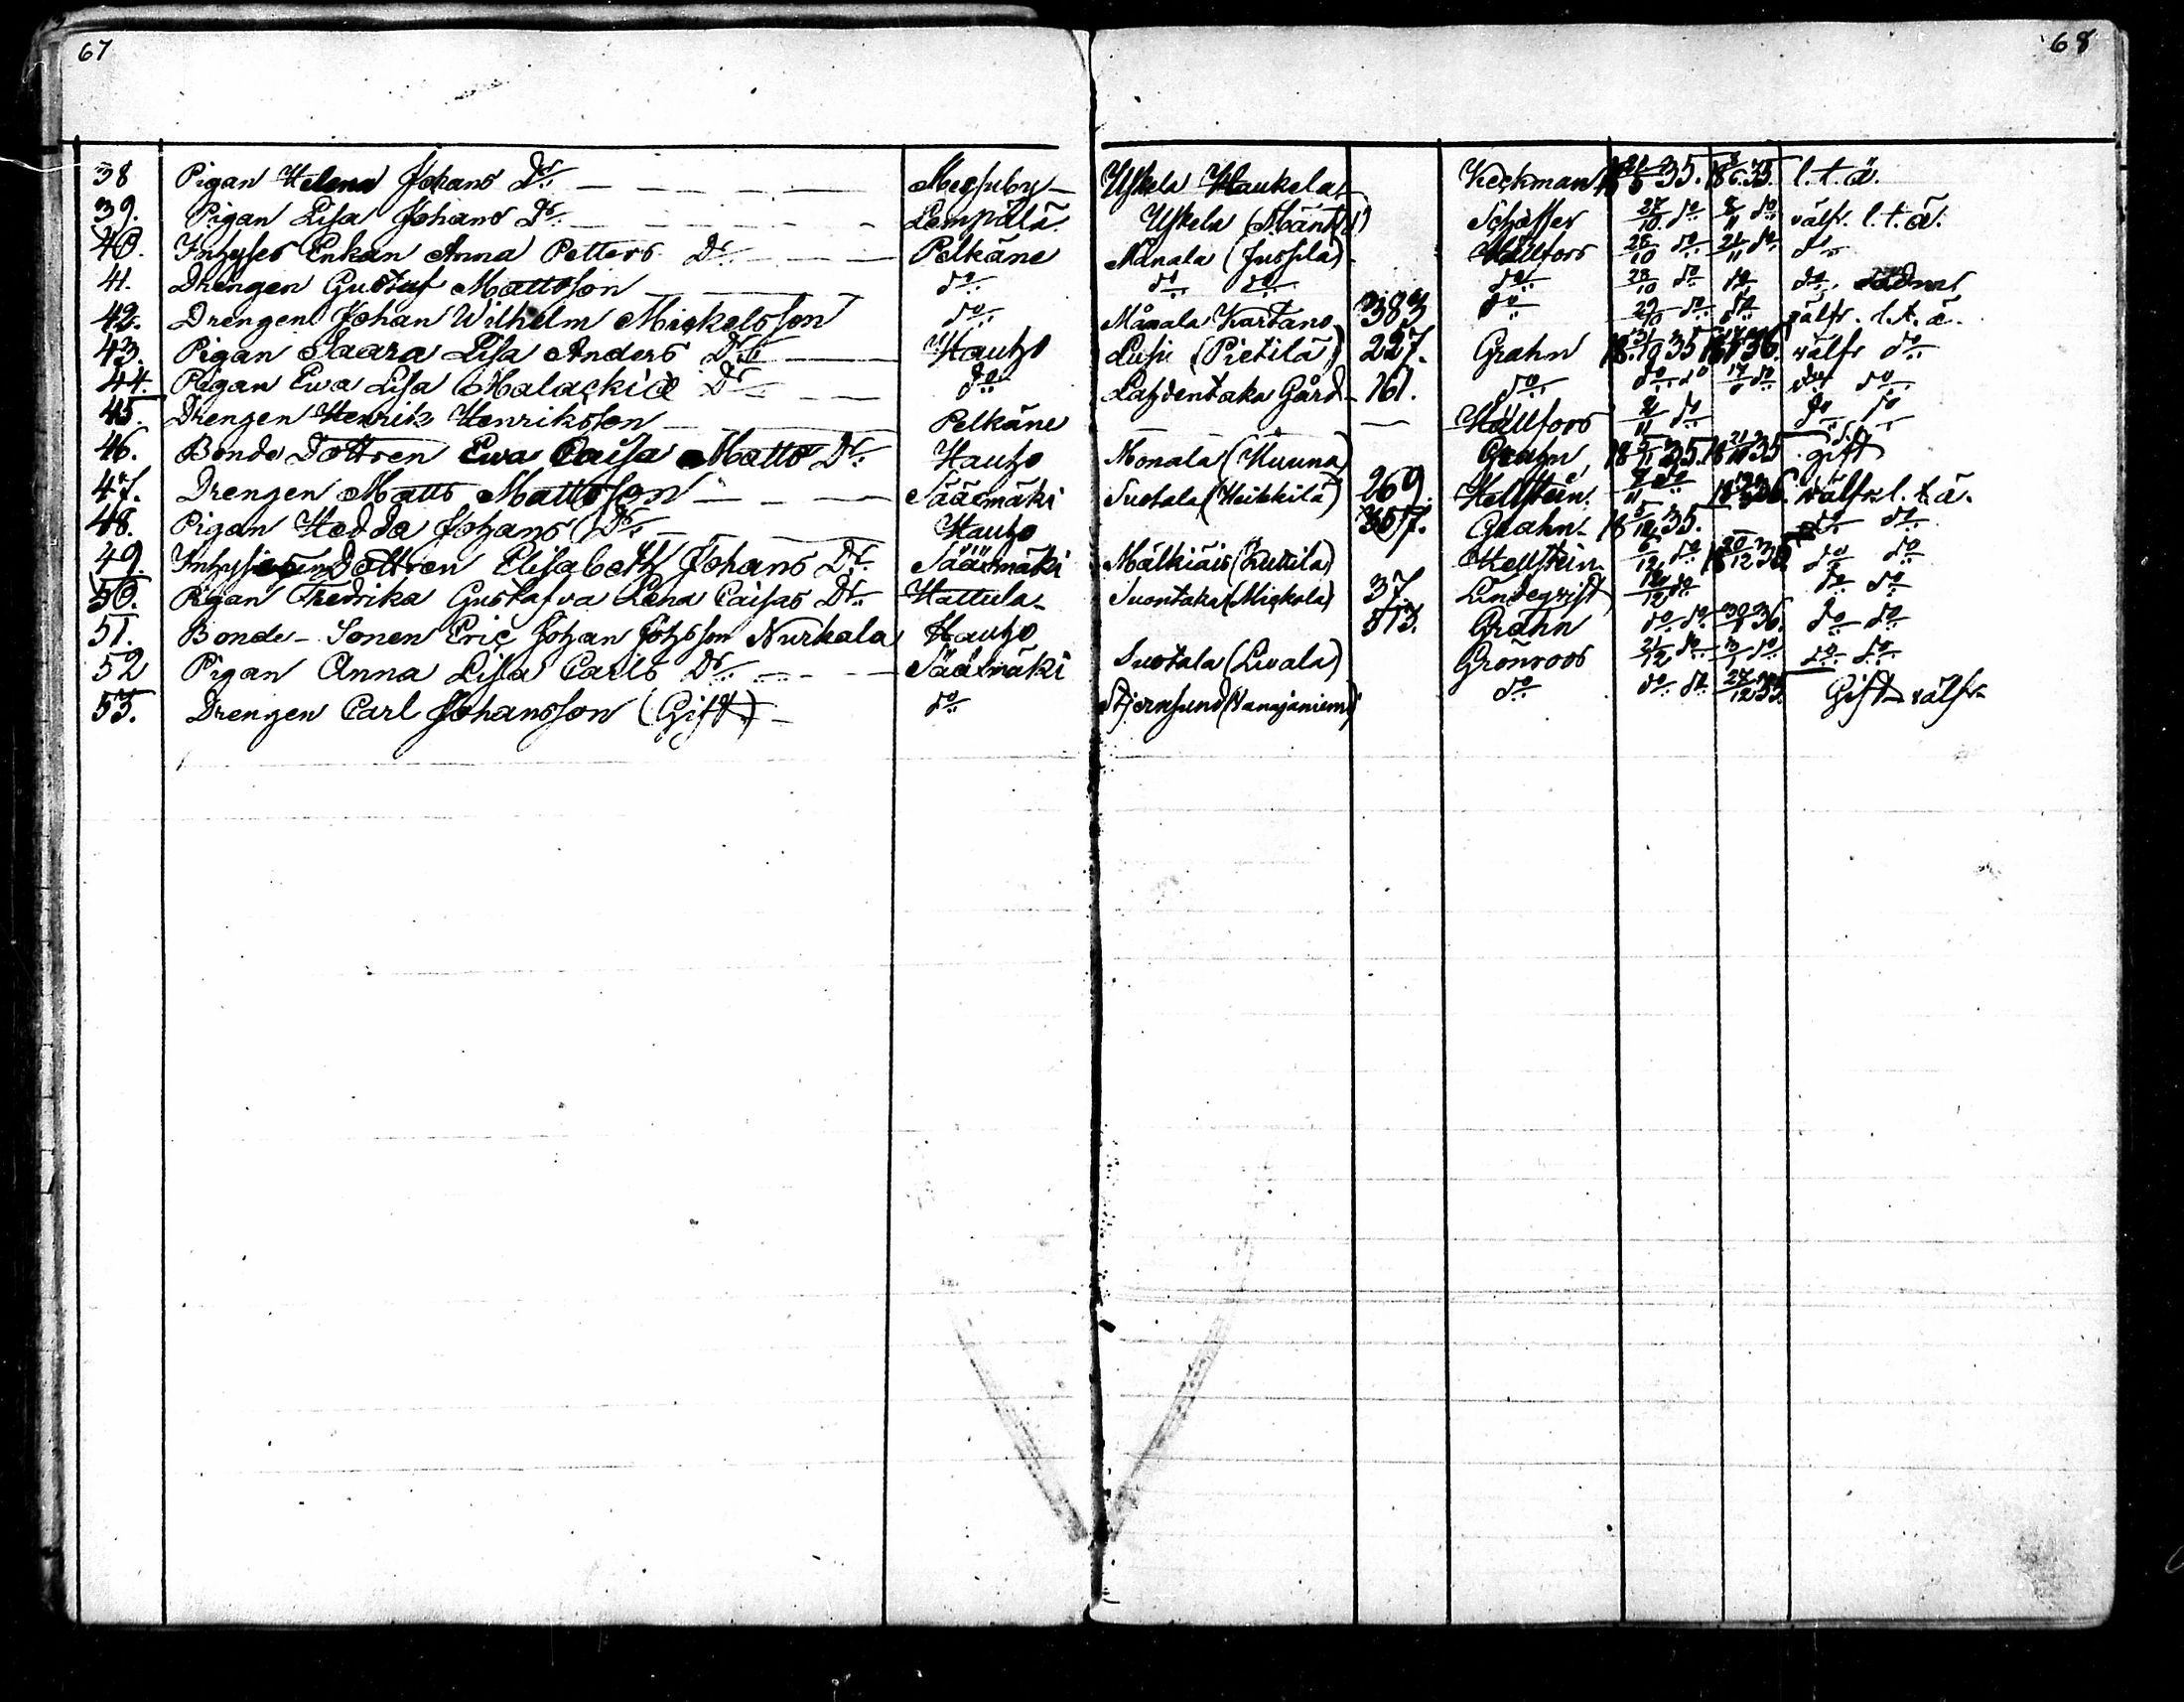 67
68
38 Pigan Helena Johans Dr. Messuby Uskela Haukela Keckman 18 21/5 35. 18 8/6 35. l. t. ä.
39. Pigan Lisa Johans Dr. Lempälä Uskela (Mäntt) Schæffer 27/10 do 8/11 do välfr. l. t. ä.
40. Inhyses Enkan Anna Petters Dr. Pelkäne Månala (Jussila) Hällfors 28/10 do 21/11 do do
41. Drengen Gustaf Mattsson do do do do 28/10 do do do
42. Drengen Johan Wilhelm Mickelsson do Månala Kartano 383 do 29/10 do do välfr. l. t. ä.
43. Pigan Saara Lisa Anders Dr. Hauho Lusii (Pietilä) 227. Grahn 18 31/10 35 36. välfr do
44. Pigan Ewa Lisa Malackiæ Dr. do Lahdentaka Gård 161. do do do 17 do do do
45. Drengen Henrik Henriksson Pelkäne Hällfors 2/11 do do do
46. Bonde Dottren Ewa Caisa Matts Dr. Hauho Monala (Kuuna) Grahn 18 5/11 35. 18 21 35 gift
47. Drengen Matts Mattsson Sääxmäki Suotala (Heikkilä) 269. Hellstein 7/11 do 36. välfr l. t. ä.
48. Pigan Hedda Johans Dr. Hauho 357. Grahn 18 5/12 35. do do
49. Inhyses Dottren Elisabeth Johans Dr. Sääxmäki Mälkiäis (Kuttila) Hellstein 6/12 do 18 20/12 35 do do
50. Pigan Fredrika Gustafva Lena Caisas Dr. Hattula Suontaka (Mickola) 37. Lindeqvist 12/12 do do do
51. Bonde-Sonen Eric Johan Johsson Nurkala Hauho 513. Grahn do do 30/1 36. do do
52 Pigan Anna Lisa Carls Dr. Sääxmäki Suotala (Liuala) Grönroos 21/12 do do do do
53. Drengen Carl Johansson (Gift) do Stjernsund (Vanajaniemi) do do do 27/12 35. Gift välfr